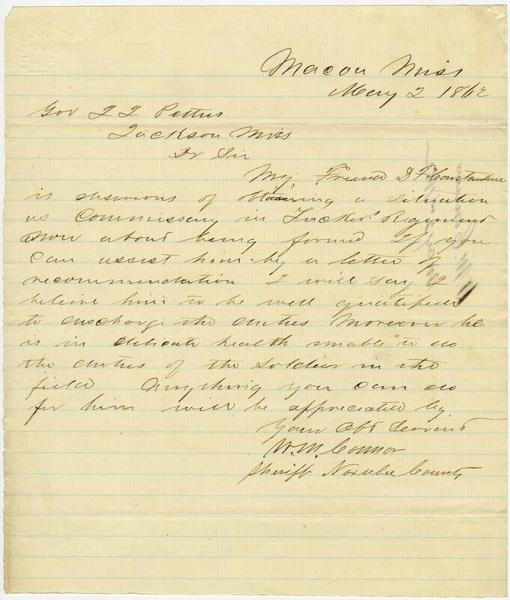 Macon Miss
May 2 1862
Gov J J Pettus
Jackson Miss
Dr Sir
My Friend D F Constantine
is desirious of obtaining a situation
as Commissary in Tucker's Regiment
now about being formed If you
can assist him by a letter of
recommendation I will say I
beleive him to be well qualified
to discharge the duties Moreover he
is in delicate health unable to do
the duties of the soldier in the
field Anything you can do
for him will be appreciated by
Your Obt Servent
W. M. Connor
Sheriff Noxubee County